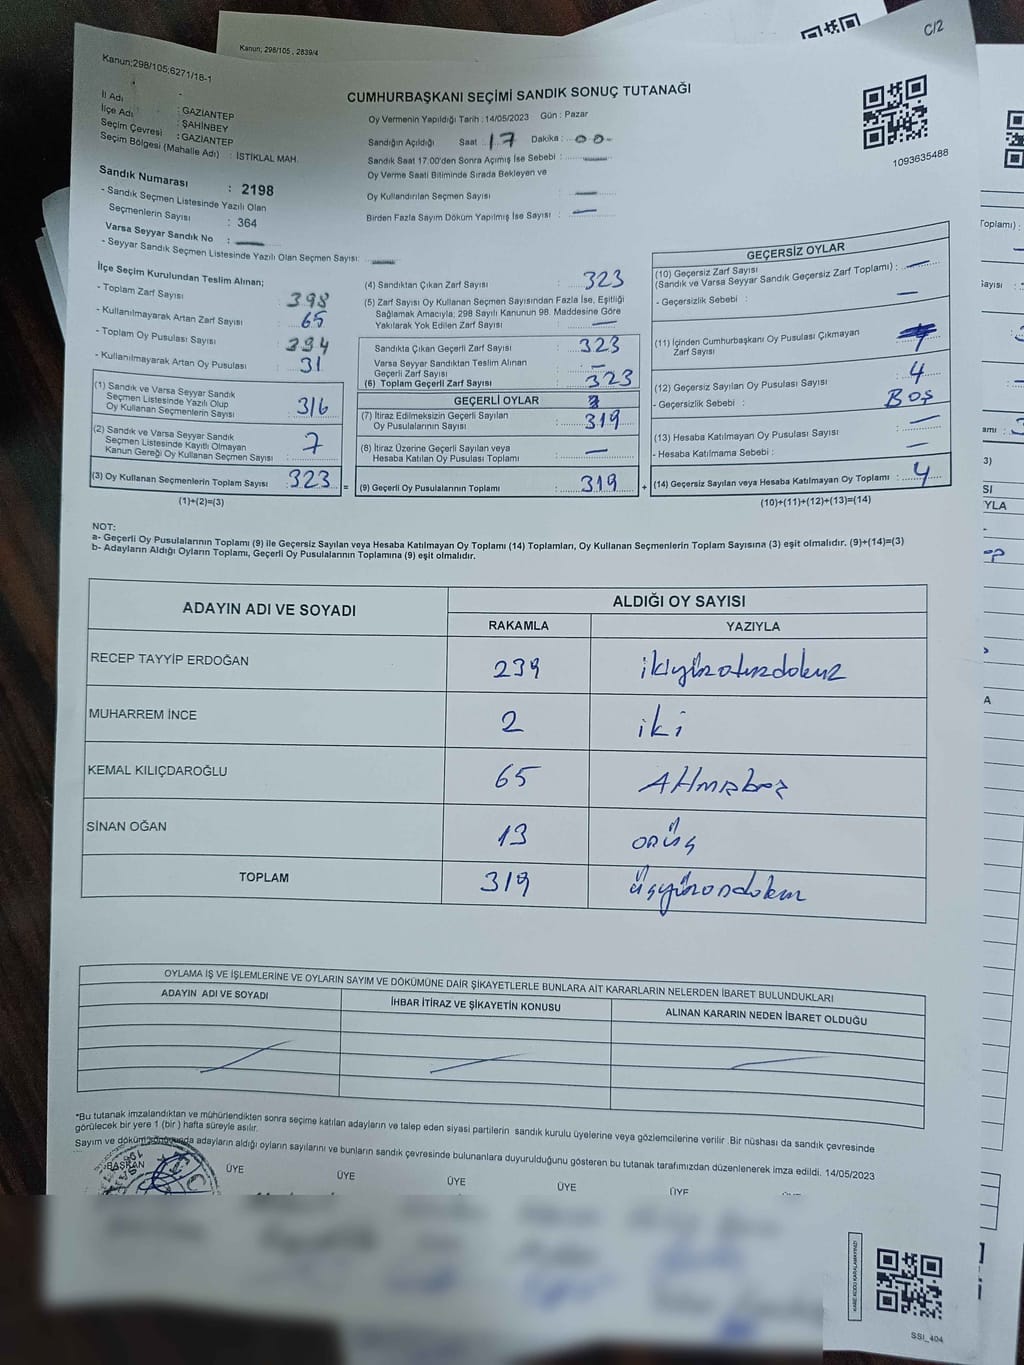 Kanun; 298/105 , 2839/4
C/2
Kanun;298/105;6271/18-1
CUMHURBAŞKANI SEÇİMİ SANDIK SONUÇ TUTANAĞI
İl Adı : GAZİANTEP
İlçe Adı : ŞAHİNBEY
Seçim Çevresi : GAZİANTEP
Seçim Bölgesi (Mahalle Adı) : İSTİKLAL MAH.
Sandık Numarası : 2198
- Sandık Seçmen Listesinde Yazılı Olan
Seçmenlerin Sayısı : 364
Varsa Seyyar Sandık No :
- Seyyar Sandık Seçmen Listesinde Yazılı Olan Seçmen Sayısı:
Oy Vermenin Yapıldığı Tarih : 14/05/2023 Gün : Pazar
Sandığın Açıldığı Saat : 17 Dakika : 00
Sandık Saat 17:00'den Sonra Açımış İse Sebebi :
Oy Verme Saati Bitiminde Sırada Bekleyen ve
Oy Kullandırılan Seçmen Sayısı :
Birden Fazla Sayım Döküm Yapılmış İse Sayısı :
1093635488
İlçe Seçim Kurulundan Teslim Alınan;
- Toplam Zarf Sayısı : 398
- Kullanılmayarak Artan Zarf Sayısı : 65
- Toplam Oy Pusulası Sayısı : 394
- Kullanılmayarak Artan Oy Pusulası : 31
(1) Sandık ve Varsa Seyyar
Seçmen Listesinde Yazılı Olup
Oy Kullanan Seçmenlerin Sayısı : 316
(2) Sandık ve Varsa Seyyar Sandık
Seçmen Listesinde Kayıtlı Olmayan
Kanun Gereği Oy Kullanan Seçmen Sayısı : 7
(3) Oy Kullanan Seçmenlerin Toplam Sayısı : 323 =
(1)+(2)=(3)
(4) Sandıktan Çıkan Zarf Sayısı : 323
(5) Zarf Sayısı Oy Kullanan Seçmen Sayısından Fazla İse, Eşitliği
Sağlamak Amacıyla; 298 Sayılı Kanunun 98. Maddesine Göre
Yakılarak Yok Edilen Zarf Sayısı :
Sandıkta Çıkan Geçerli Zarf Sayısı : 323
Varsa Seyyar Sandıktan Teslim Alınan
Geçerli Zarf Sayısı :
(6) Toplam Geçerli Zarf Sayısı : 323
GEÇERLİ OYLAR
(7) İtiraz Edilmeksizin Geçerli Sayılan
Oy Pusulalarının Sayısı : 319
(8) İtiraz Üzerine Geçerli Sayılan veya
Hesaba Katılan Oy Pusulası Toplamı :
(9) Geçerli Oy Pusulalarının Toplamı : 319 +
GEÇERSİZ OYLAR
(10) Geçersiz Zarf Sayısı
(Sandık ve Varsa Seyyar Sandık Geçersiz Zarf Toplamı) :
- Geçersizlik Sebebi :
(11) İçinden Cumhurbaşkanı Oy Pusulası Çıkmayan
Zarf Sayısı :
(12) Geçersiz Sayılan Oy Pusulası Sayısı : 4
- Geçersizlik Sebebi : BOŞ
(13) Hesaba Katılmayan Oy Pusulası Sayısı :
- Hesaba Katılmama Sebebi :
(14) Geçersiz Sayılan veya Hesaba Katılmayan Oy Toplamı : 4
(10)+(11)+(12)+(13)=(14)
NOT:
a- Geçerli Oy Pusulalarının Toplamı (9) ile Geçersiz Sayılan veya Hesaba Katılmayan Oy Toplamı (14) Toplamları, Oy Kullanan Seçmenlerin Toplam Sayısına (3) eşit olmalıdır. (9)+(14)=(3)
b- Adayların Aldığı Oyların Toplamı, Geçerli Oy Pusulalarının Toplamına (9) eşit olmalıdır.
ADAYIN ADI VE SOYADI ALDIĞI OY SAYISI
RAKAMLA YAZIYLA
RECEP TAYYİP ERDOĞAN 239 ikiyüzotuzdokuz
MUHARREM İNCE 2 iki
KEMAL KILIÇDAROĞLU 65 Altmışbeş
SİNAN OĞAN 13 onüç
TOPLAM 319 üçyüzondokuz
OYLAMA İŞ VE İŞLEMLERİNE VE OYLARIN SAYIM VE DÖKÜMÜNE DAİR ŞİKAYETLERLE BUNLARA AİT KARARLARIN NELERDEN İBARET BULUNDUKLARI
ADAYIN ADI VE SOYADI İHBAR İTİRAZ VE ŞİKAYETİN KONUSU ALINAN KARARIN NEDEN İBARET OLDUĞU
*Bu tutanak imzalandıktan ve mühürlendikten sonra seçime katılan adayların ve talep eden siyasi partilerin sandık kurulu üyelerine veya gözlemcilerine verilir .Bir nüshası da sandık çevresinde
görülecek bir yere 1 (bir ) hafta süreyle asılır.
Sayım ve döküm sonucunda adayların aldığı oyların sayılarını ve bunların sandık çevresinde bulunanlara duyurulduğunu gösteren bu tutanak tarafımızdan düzenlenerek imza edildi. 14/05/2023
BAŞKAN ÜYE ÜYE ÜYE ÜYE ÜYE
KARE KODU KARALAMAYINIZ!
SSİ_404